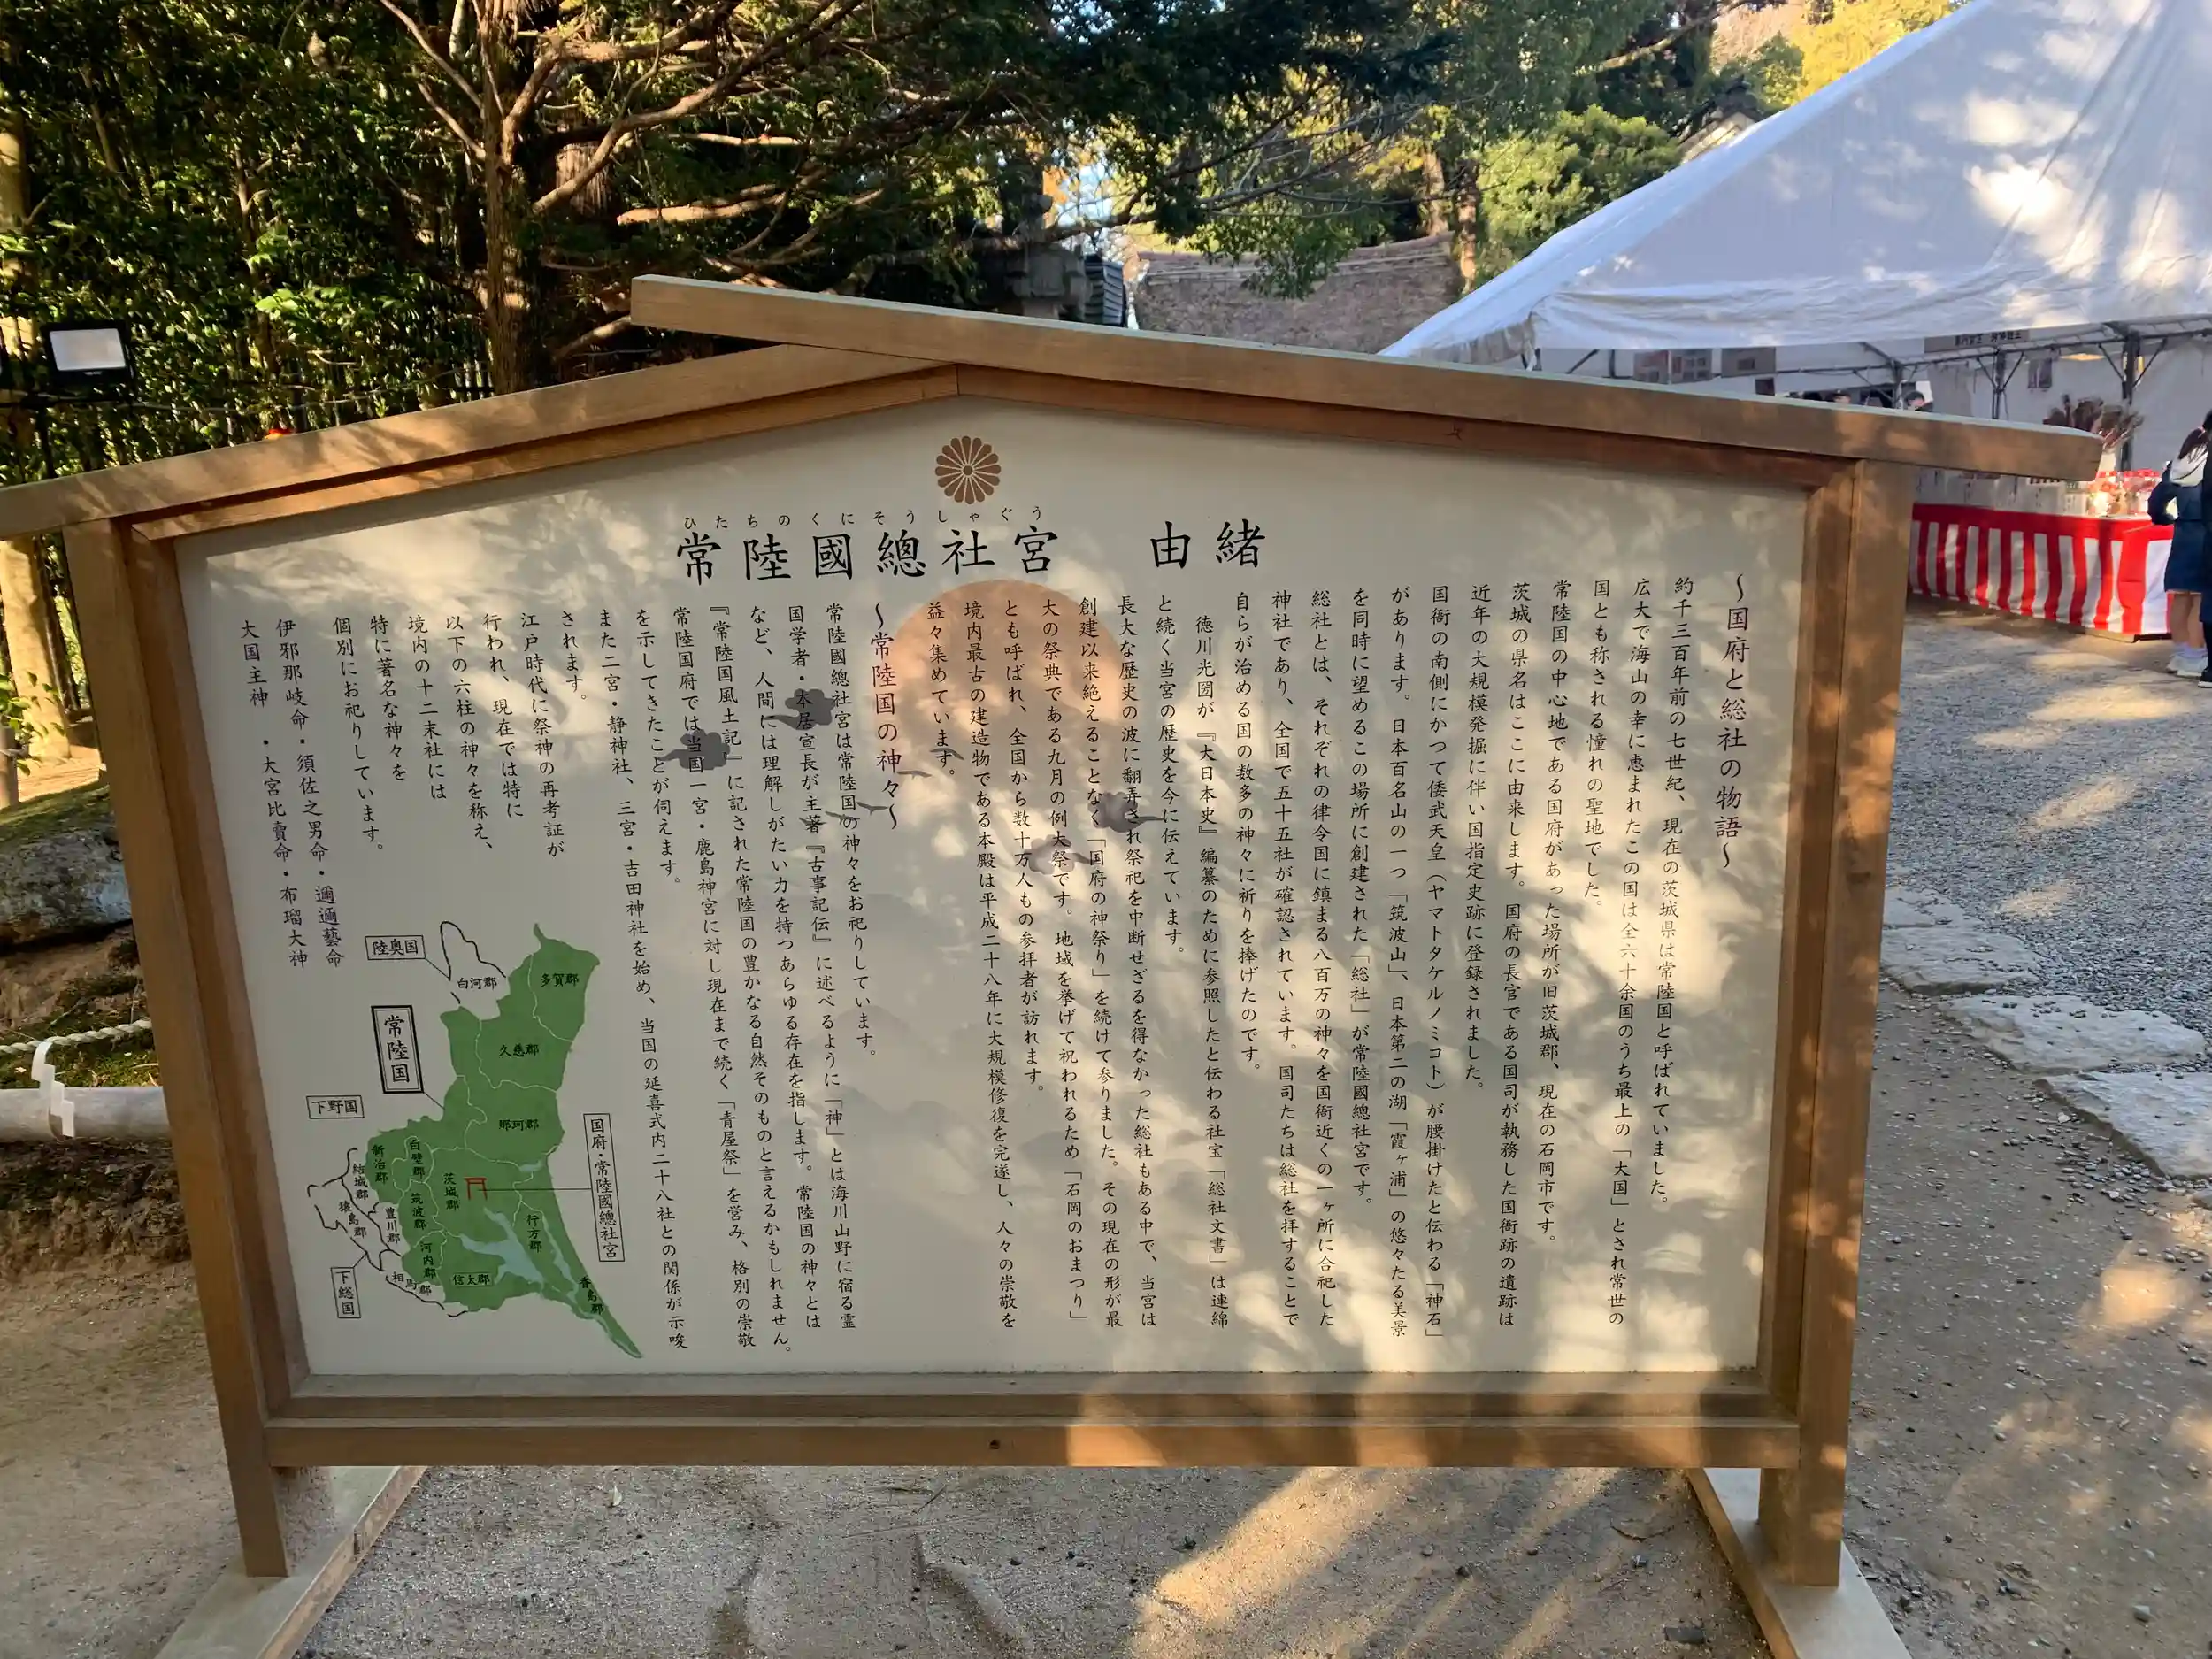 ひたちのくにそうしゃぐう
常陸國總社宮 由緒
～国府と総社の物語～
約千三百年前の七世紀、現在の茨城県は常陸国と呼ばれていました。
広大で海山の幸に恵まれたこの国は全六十余国のうち最上の「大国」とされ常世の
国とも称される憧れの聖地でした。
常陸国の中心地である国府があった場所が旧茨城郡、現在の石岡市です。
茨城の県名はここに由来します。国府の長官である国司が執務した国衙跡の遺跡は
近年の大規模発掘に伴い国指定史跡に登録されました。
国衙の南側にかつて倭武天皇（ヤマトタケルノミコト）が腰掛けたと伝わる「神石」
があります。日本百名山の一つ「筑波山」、日本第二の湖「霞ヶ浦」の悠々たる美景
を同時に望めるこの場所に創建された「総社」が常陸國總社宮です。
総社とは、それぞれの律令国に鎮まる八百万の神々を国衙近くの一ヶ所に合祀した
神社であり、全国で五十五社が確認されています。国司たちは総社を拝することで
自らが治める国の数多の神々に祈りを捧げたのです。
徳川光圀が『大日本史』編纂のために参照したと伝わる社宝「総社文書」は連綿
と続く当宮の歴史を今に伝えています。
長大な歴史の波に翻弄され祭祀を中断せざるを得なかった総社もある中で、当宮は
創建以来絶えることなく「国府の神祭り」を続けて参りました。その現在の形が最
大の祭典である九月の例大祭です。地域を挙げて祝われるため「石岡のおまつり」
とも呼ばれ、全国から数十万人もの参拝者が訪れます。
境内最古の建造物である本殿は平成二十八年に大規模修復を完遂し、人々の崇敬を
益々集めています。
～常陸国の神々～
常陸國總社宮は常陸国の神々をお祀りしています。
国学者・本居宣長が主著『古事記伝』に述べるように「神」とは海川山野に宿る霊
など、人間には理解しがたい力を持つあらゆる存在を指します。常陸国の神々とは
『常陸国風土記』に記された常陸国の豊かなる自然そのものと言えるかもしれません。
常陸国府では当国一宮・鹿島神宮に対し現在まで続く「青屋祭」を営み、格別の崇敬
を示してきたことが伺えます。
また二宮・静神社、三宮・吉田神社を始め、当国の延喜式内二十八社との関係が示唆
されます。
江戸時代に祭神の再考証が
行われ、現在では特に
以下の六柱の神々を称え、
境内の十二末社には
特に著名な神々を
個別にお祀りしています。
伊邪那岐命・須佐之男命・邇邇藝命
大国主神・大宮比賣命・布瑠大神
陸奥国
白河郡
多賀郡
常陸国
久慈郡
下野国
那珂郡
国府・常陸國總社宮
新治郡
白壁郡
結城郡
筑波郡
茨城郡
猿島郡
豊川郡
行方郡
河内郡
下総国
相馬郡
信太郡
香島郡